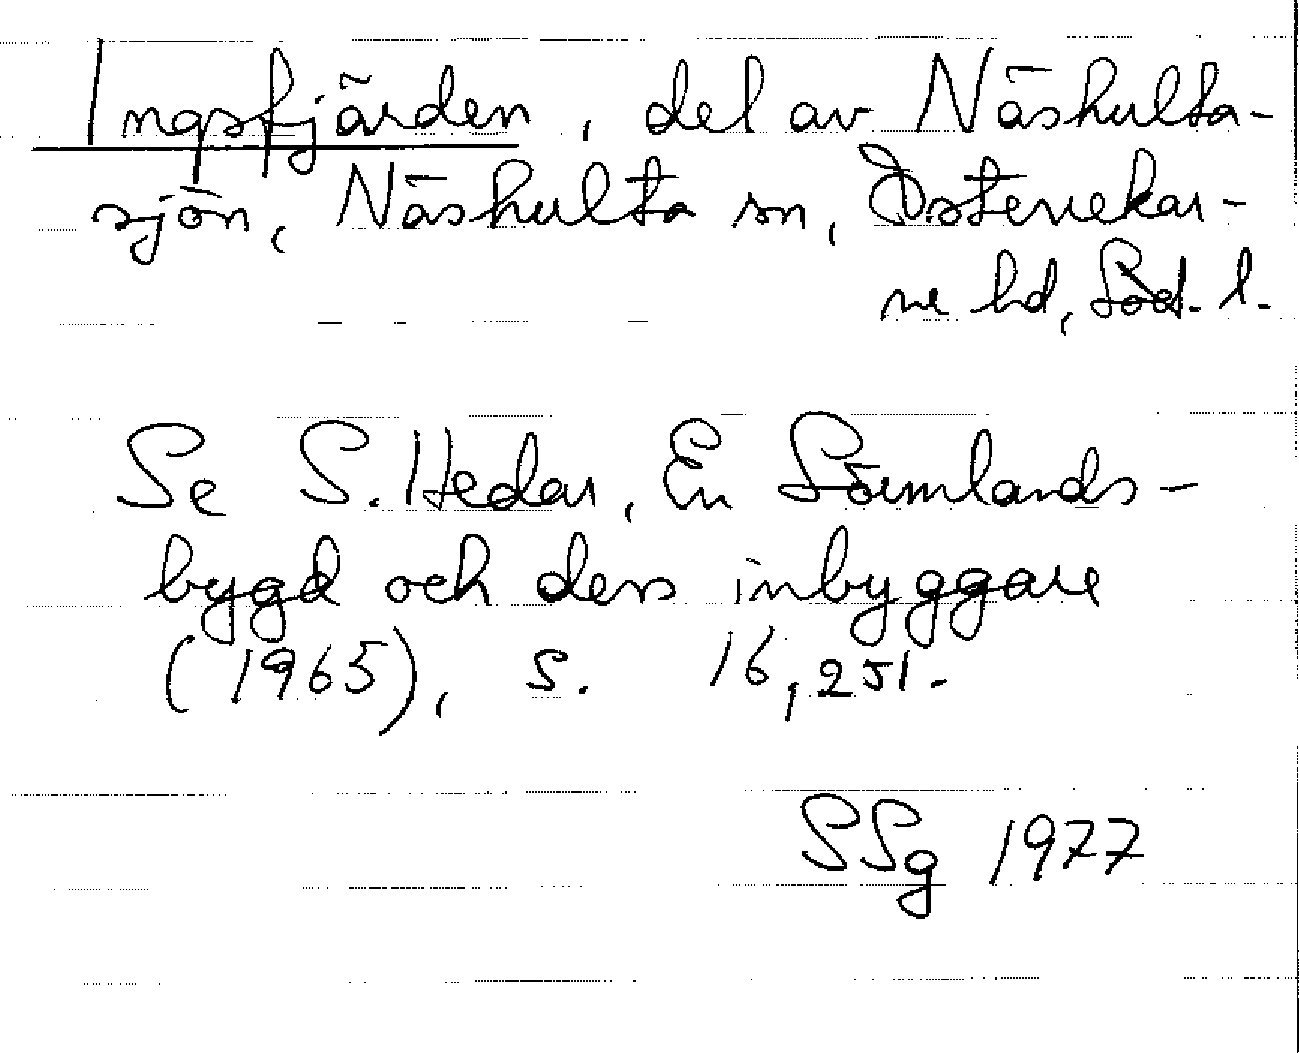 Ingsfjärden, del av Näshulta-
sjön, Näshulta sn, Österrekar-
ne hd, Söd. l.
Se S. Hedar, En Sörmlands-
bygd och dess inbyggare
(1965), s. 16, 251.
SSg 1977